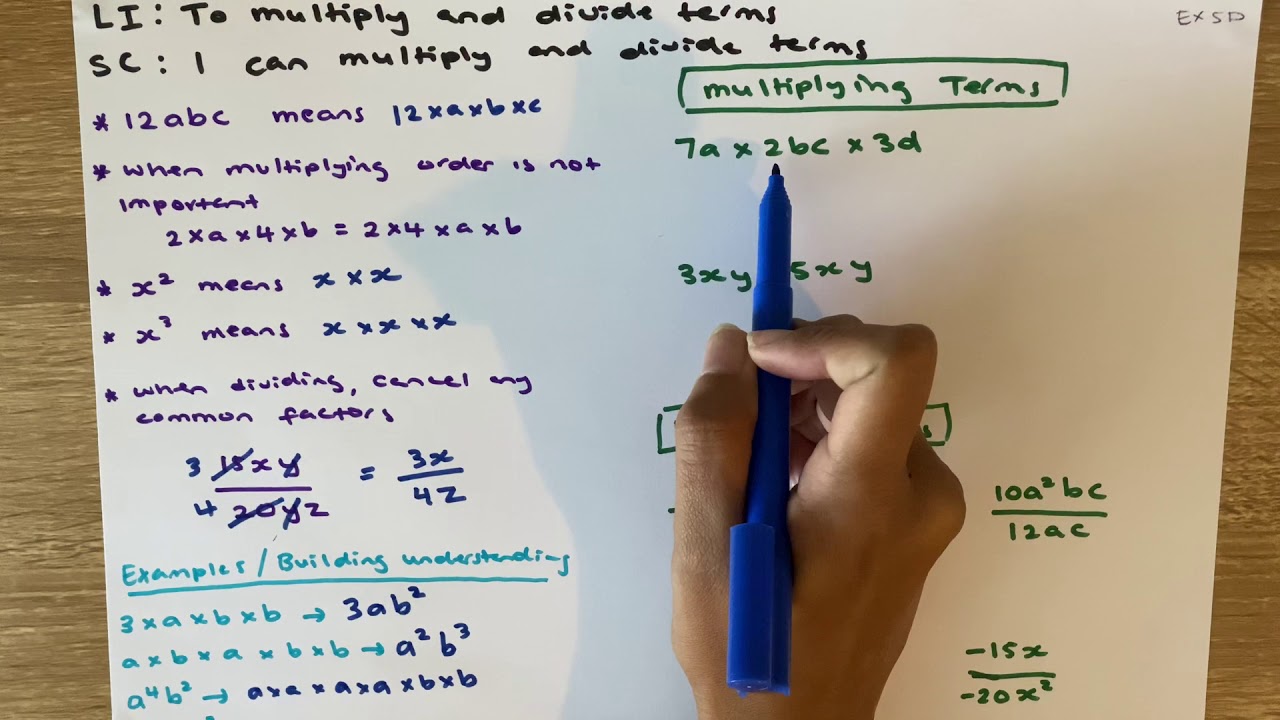 LI: To multiply and divide terms
SC: I can multiply and divide terms
EX 5D
* 12abc means 12×a×b×c
* when multiplying order is not
important
2×a×4×b = 2×4×a×b
* x² means x×x
* x³ means x×x×x
* when dividing, cancel any
common factors
3 15xy / 4 20yz = 3x / 4z
Examples/Building understanding
3×a×b×b → 3ab²
a×b×a×b×b → a²b³
a⁴b² → a×a×a×a×b×b
Multiplying Terms
7a × 2bc × 3d
3xy 5xy
10a²bc
12ac
-15x
-20x²